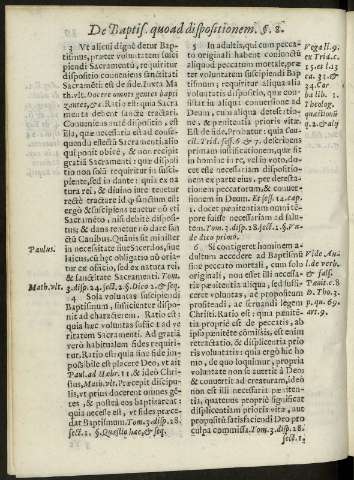 De Baptis. quoad dispositionem. §. 8.
3 Vt alicui dignè detur Bap-
tismus, præter voluntatem susci-
piendi Sacramentũ, re quiritur
dispositio conueniens sanctitati
Sacramẽti: est de fide. Iuxta Ma
th. vlt. Docete omnes gentes bapti
zantes, &c. Ratio est: quia Sacra
menta debent sanctè tractari.
Conueniens dispositio porrò, est
illa, quæ necessaria est ad conse-
quendũ effectũ Sacramenti: alio
qui ponit obicẽ, & non recipit
gratiã Sacramenti: quæ disposi
tio non solũ requiritur in susci-
piente, sed in dante: quia ex na
tura rei, & diuino iure tenetur
rectè tractare id, quod sanctum est:
ergò & suscipiens tenetur nõ vti
Sacramẽto, nisi debitè disposi-
tus; & dans tenetur nõ dare san
ctũ Canibus. Quãuis sit minister
in necessitate siue Sacerdos, siue
laicus, cũ hæc obligatio nõ oria
tur ex officio, sed ex natura rei,
& sanctitate Sacramenti. Tom.
3. disp. 24. sect. 2. §. Dico 2. & seq.
4 Sola voluntas suscipiendi
Baptismum, sufficienter dispo-
nit ad characterem. Ratio est:
quia hæc voluntas sufficit ad ve
ritatem Sacramenti. Ad gratiã
verò habitualem fides requiri-
tur. Ratio est: quia sine fide im-
possibile est placere Deo, vt ait
Paul. ad Hebr. 11. & ideò Chri-
stus, Math. vlt. Præcepit discipu-
lis, vt prius docerent omnes gẽ-
tes, & posteà eos baptizarent:
quia necesse est, vt fides præce-
dat Baptismum. Tom. 3. disp. 28.
sect. 1. §. Quæstio hæc, & seq.
Paulus.
Math. vlt.
5 In adultis, qui cum pecca-
to originali habent coniunctũ
aliquod peccatum mortale, præ
ter voluntatem, & fidem, etiam
necessaria est aliqua displicentia,
& pœnitentia prioris vitæ:
Est de fide. Probatur: quia Con-
cil. Trid. sess. 6. & 7. describens
primam iustificationem, quæ fit
in homine in re, vel in voto, do-
cet esse necessariam dispositio-
nem ex parte eius, per detesta-
tionem peccatorum, & conuer-
sionem in Deum. Et sess. 14. cap.
1. docet pœnitentiam omni tẽ-
pore fuisse necessariam ad salu-
tem. Tom. 3. disp. 28. sect. 2. §. Va-
dè dico primo.
6 Si contigeret hominem a-
dultum accedere ad Baptismũ
sinè peccato mortali, cum solo
originali, non esset illi necessa-
ria pœnitentia aliqua, sed suffi-
ceret voluntas, ac propositum
prosequendi, & seruandi legem
Christi. Ratio est: quia pœnitẽ-
tia propriè est de peccatis, ab
ipso pœnitẽte cõmissis, est enim
retractatio, & displicentia prio-
ris voluntatis: quia ergò hic ho
mo, de quo loquimur, propria
voluntate non se auertit à Deo
& conuertit ad creaturam, ideò
non est illi necessaria pœniten-
tia, quatenus proprie significat
displicentiam prioris vitæ, aut
propositũ satisfaciendi Deo pro
culpa commissa. Tom. 3. disp. 28.
sect. 2